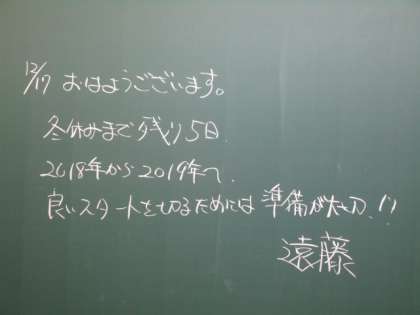 12/17 おはようございます。
冬休みまで残り5日.
2018年から2019年へ.
良いスタートを切るためには準備が大切.!!
遠藤